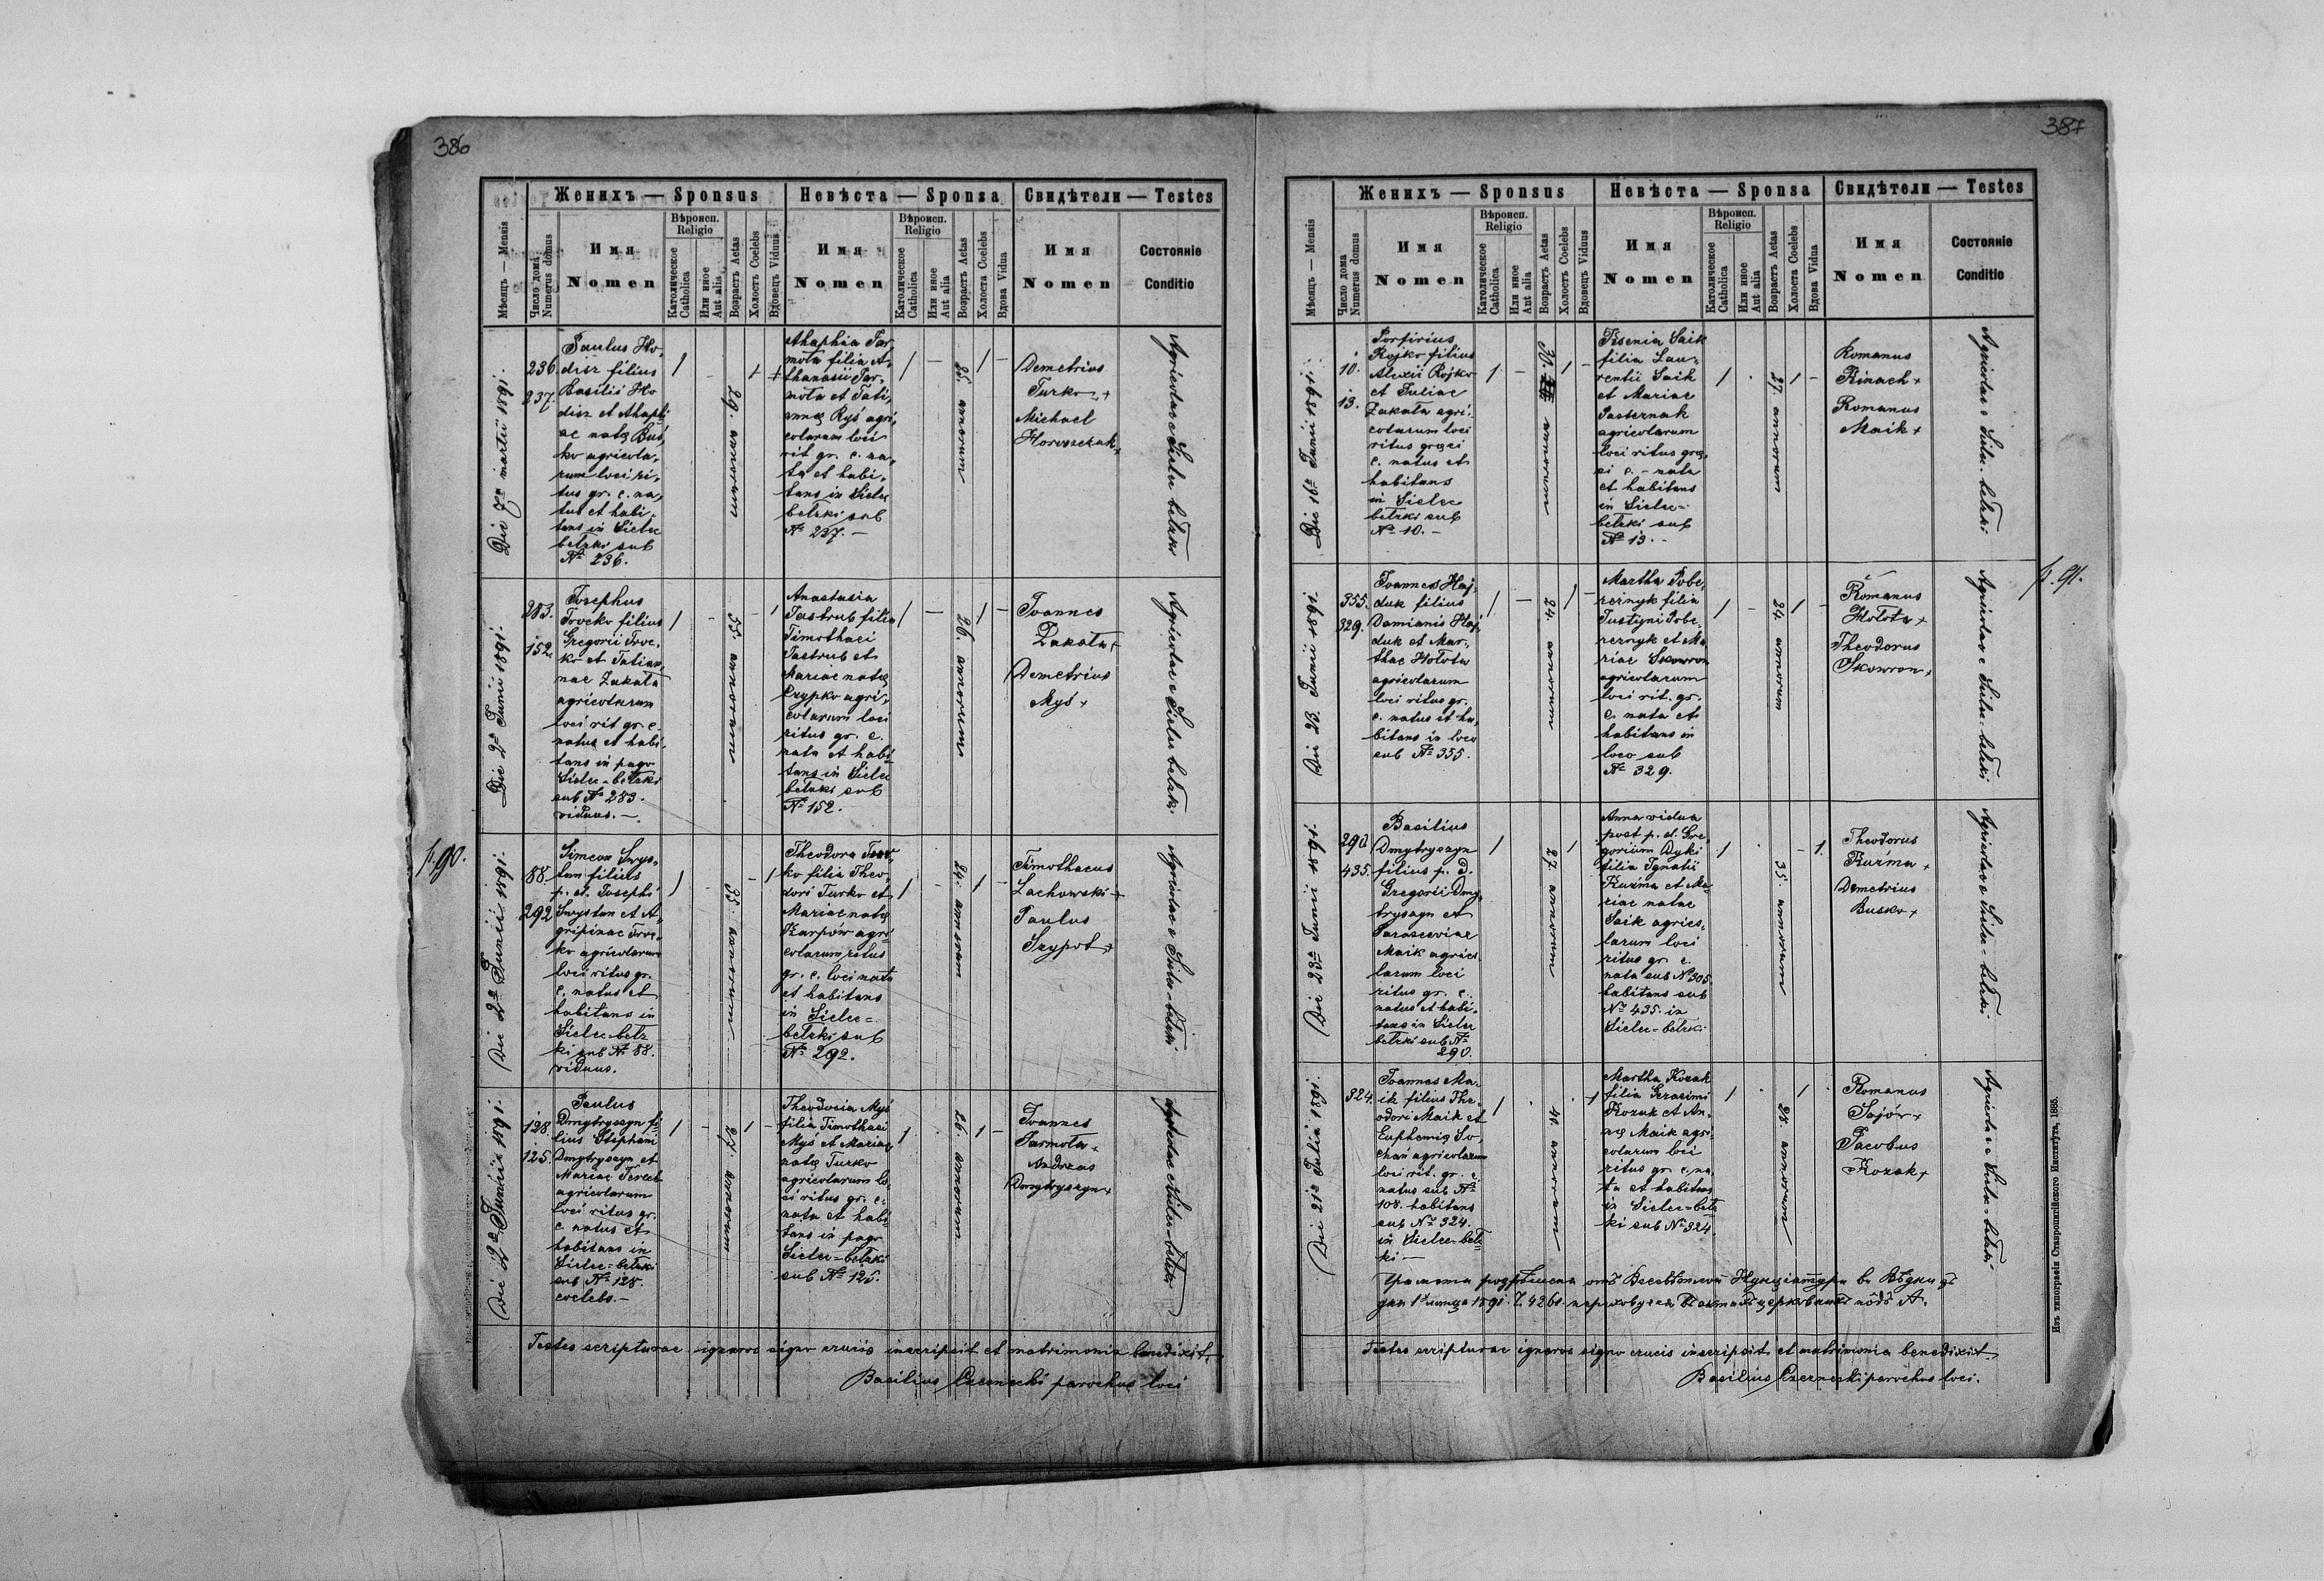 386
Женихъ — Sponsus
Невѣста — Sponsa
Свидѣтели — Testes
Мѣсяцъ — Mensis
Число дома
Numerus domus
Имя
Nomen
Вѣроисп.
Religio
Католическое
Catholica
Или иное
Aut alia
Возрастъ Aetas
Холостъ Coelebs
Вдовецъ Viduus
Имя
Nomen
Вѣроисп.
Religio
Католическое
Catholica
Или иное
Aut alia
Возрастъ Aetas
Холоста Coelebs
Вдова Vidua
Имя
Nomen
Состояніе
Conditio
Die 7ª martii 1891.
236.
237.
Paulus Ho
disz filius
Basilii Ho
disz et Ahaphi
ae natę Bus
ko agricola
rum loci ri
tus gr. c. na
tus et habi
tans in Sielec
bełzki sub
Nº 236.
29. annorum
Ahaphia Jar
mota filia A
thanasii Jar
mota et Tati
annę Ryś agri
colarum loci
rit gr. c. na
ta et habi
tans in Sielec
bełzki sub
Nº 237. —
25. annorum
Demetrius
Turko +
Michael
Horoszczuk +
Agricolae e Sielec bełzki
Die 2ª Junii 1891.
283.
152.
Josephus
Trocko filius
Gregorii Troc
ko et Tatian
nae Zakała
agricolarum
loci rit gr. c.
natus et habi
tans in pago
Sielec-bełzki
sub Nº 283.
viduus. —
55 annorum
Anastasia
Jastrub filia
Timothaei
Jastrub et
Mariae natę
Czypko agri
colarum loci
ritus gr. c.
nata et habi
tans in Sielec
bełzki sub
Nº 152.
26. annorum
Joannes
Zakała +
Demetrius
Myś +
Agricolae e Sielec bełzki
p. 90.
Die 2ª Junii 1891.
88.
292
Simeon Swys
tun filius
p. d. Josephi
Swystun et A
gripinae Troc
ko agricolarum
loci ritus gr.
c. natus et
habitans in
Sielec-bełz
ki sub Nº 88.
viduus.
35. annorum
Theodora Tur
ko filia Theo
dori Turko et
Mariae natę
Karpów agri
colarum ritus
gr. c. loci nata
et habitans
in Sielec=
bełzki sub
Nº 292.
24. annorum
Timothaeus
Lachowski +
Paulus
Szypot +
Agricolae e Sielec-bełzki
Die 2ª Junii 1891.
128
125.
Paulus
Dmytryszyn fi
lius Stephani
Dmytryszyn et
Mariae Terech
agricolarum
loci ritus gr.
c. natus et
habitans in
Sielec-bełzki
sub Nº 128.
coelebs. —
27. annorum
Theodosia Myś
filia Timothaei
Myś et Mariae
natę Turko
agricolarum lo
ci ritus gr. c.
nata et habi
tans in pago
Sielec=bełzki
sub Nº 125.
26. annorum
Joannes
Jarmota +
Andreas
Dmytryszyn +
Agricolae e Sielec-bełzki
Testes scripturae ignaros signo crucis inscripsit et matrimonia benedixit,
Basilius Czernecki parochus loci
387
Женихъ — Sponsus
Невѣста — Sponsa
Свидѣтели — Testes
Мѣсяцъ — Mensis
Число дома
Numerus domus
Имя
Nomen
Вѣроисп.
Religio
Католическое
Catholica
Или иное
Aut alia
Возрастъ Aetas
Холостъ Coelebs
Вдовецъ Viduus
Имя
Nomen
Вѣроисп.
Religio
Католическое
Catholica
Или иное
Aut alia
Возрастъ Aetas
Холоста Coelebs
Вдова Vidua
Имя
Nomen
Состояніе
Conditio
Die 16ª Junii 1891.
10.
13.
Porfirius
Rojko filius
Alexii Rojko
et Juliae
Zakała agri
colarum loci
ritus gręci
c. natus et
habitans
in Sielec
bełzki sub
Nº 10. —
30. annorum
Xsenia Saik
filia Lau
rentii Saik
et Mariae
Pasternak
agricolarum
loci ritus grę
ci c. — nata
et habitans
in Sielec=
bełzki sub
Nº 13. —
27. annorum
Romanus
Kinach +
Romanus
Maik +
Agricolae e Sielec-bełzki
p. 91.
Die 23. Junii 1891.
355.
329.
Joannes Haj
duk filius
Damianis Haj
duk et Mar
thae Hołota
agricolarum
loci ritus gr.
c. natus et ha
bitans in loco
sub Nº 355.
24. annorum
Martha Pobe
reznyk filia
Justyni Pobe
reznyk et Ma
riae Skowron
agricolarum
loci rit. gr.
c. nata et
habitans in
loco sub
Nº 329.
24. annorum
Romanus
Hołota +
Theodorus
Skowron +
Agricolae e Sielec-bełzki
Die 23ª Junii 1891.
290.
435.
Basilius
Dmytryszyn
filius p. d.
Gregorii Dmy
tryszyn et
Parasceviae
Maik agrico
larum loci
ritus gr. c.
natus et habi
tans in Sielec
bełzki sub Nº
290.
27. annorum
Anna vidua
post p. d. Gre
gorium Dyki
filia Ignatii
Kuźma et Ma
riae natae
Saik agrico
larum loci
ritus gr. c.
nata sub Nº 305.
habitans sub
Nº 435. in
Sielec-bełzki
35. annorum
Theodorus
Kuźma +
Demetrius
Busko +
Agricolae e Sielec-bełzki
Die 21ª Julii 1891.
324.
Joannes Ma
ik filius The
odori Maik et
Euphemię So
chań agricolarum
loci rit. gr. c.
natus sub Nº
108. habitans
sub Nº 324.
in Sielec=bełz
ki —
40 annorum
Martha Kozak
filia Gerasimi
Kozak et An
nę Maik agri
colarum loci
ritus gr. c. na
ta et habitans
in Sielec=bełz
ki sub Nº 324.
28. annorum
Romanus
Sajór +
Jacobus
Kozak +
Agricolae e Sielec-bełzki
Testes scripturae ignaros signo crucis inscripsit et matrimonia benedixit
Basilius Czernecki parochus loci.
Изъ типографіи Ставропигійского Института, 1885.